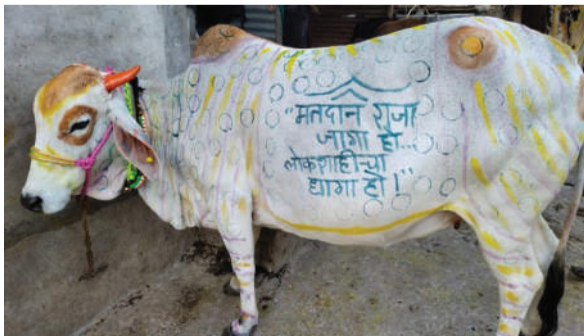 "मतदान राजा
जागा हो...
लोकशाहीच्या
धागा हो!"